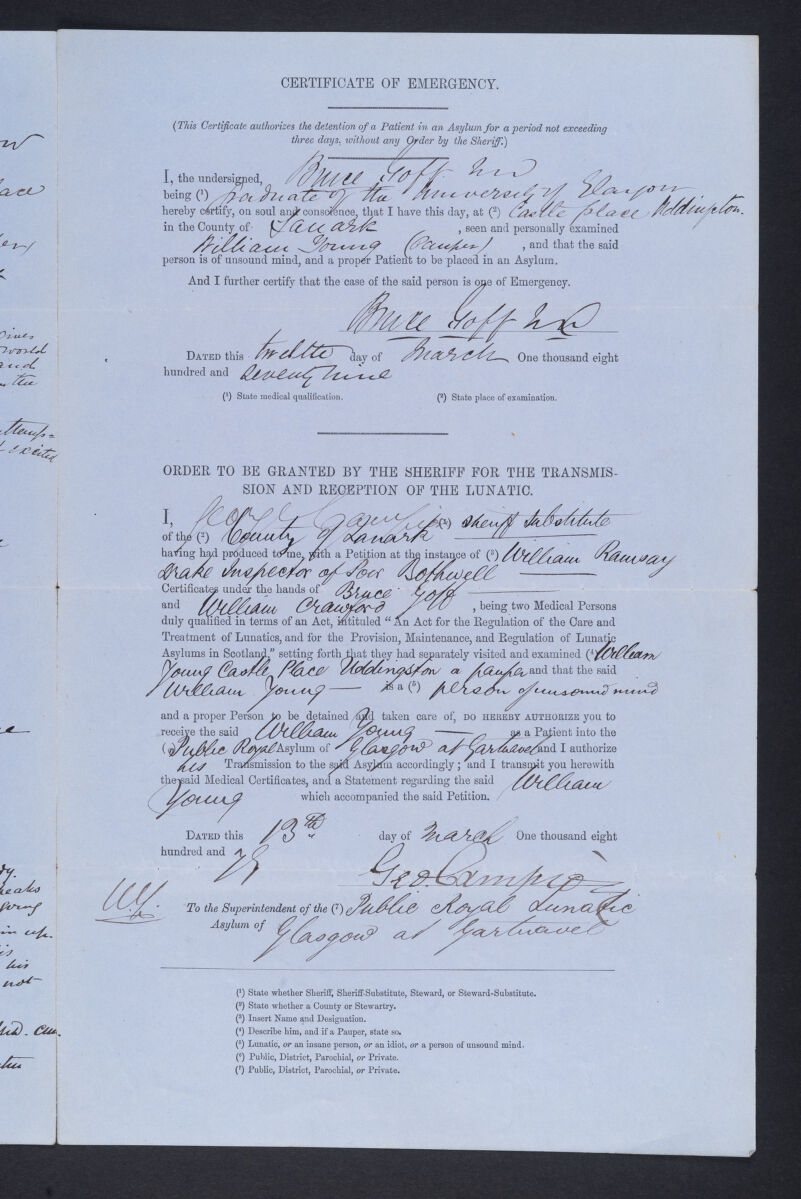 CERTIFICATE OF EMERGENCY.
(This Certificate authorizes the detention of a Patient in an Asylum for a period not exceeding
three days, without any Order by the Sheriff.)
I, the undersigned, Bruce Goff MD
being (¹) graduate of the University of Glasgow
hereby certify, on soul and conscience, that I have this day, at (²) Castle place Uddingston.
in the County of Lanark , seen and personally examined
William Young (Pauper) , and that the said
person is of unsound mind, and a proper Patient to be placed in an Asylum.
And I further certify that the case of the said person is one of Emergency.
Bruce Goff MD
DATED this twelfth day of March One thousand eight
hundred and seventy nine
(¹) State medical qualification. (²) State place of examination.
ORDER TO BE GRANTED BY THE SHERIFF FOR THE TRANSMIS-
SION AND RECEPTION OF THE LUNATIC.
I, (¹) Sheriff Substitute
of the (²) County of Lanark
having had produced to me, with a Petition at the instance of (³) William Ramsay
Drake Inspector of Poor Bothwell
Certificates under the hands of Bruce Goff
and William Crawford , being two Medical Persons
duly qualified in terms of an Act, intituled "An Act for the Regulation of the Care and
Treatment of Lunatics, and for the Provision, Maintenance, and Regulation of Lunatic
Asylums in Scotland," setting forth that they had separately visited and examined (⁴) William
Young Castle Place Uddingston a pauper and that the said
William Young — is a (⁵) person of unsound mind
and a proper Person to be detained and taken care of, DO HEREBY AUTHORIZE you to
receive the said William Young — as a Patient into the
( Public Royal Asylum of Glasgow at Gartnavel and I authorize
his Transmission to the said Asylum accordingly ; and I transmit you herewith
the said Medical Certificates, and a Statement regarding the said William
Young which accompanied the said Petition.
DATED this 13th day of March One thousand eight
hundred and 79
Geo.
To the Superintendent of the (⁷) Public Royal Lunatic
Asylum of Glasgow at Gartnavel
(¹) State whether Sheriff, Sheriff-Substitute, Steward, or Steward-Substitute.
(²) State whether a County or Stewartry.
(³) Insert Name and Designation.
(⁴) Describe him, and if a Pauper, state so.
(⁵) Lunatic, or an insane person, or an idiot, or a person of unsound mind.
(⁶) Public, District, Parochial, or Private.
(⁷) Public, District, Parochial, or Private.